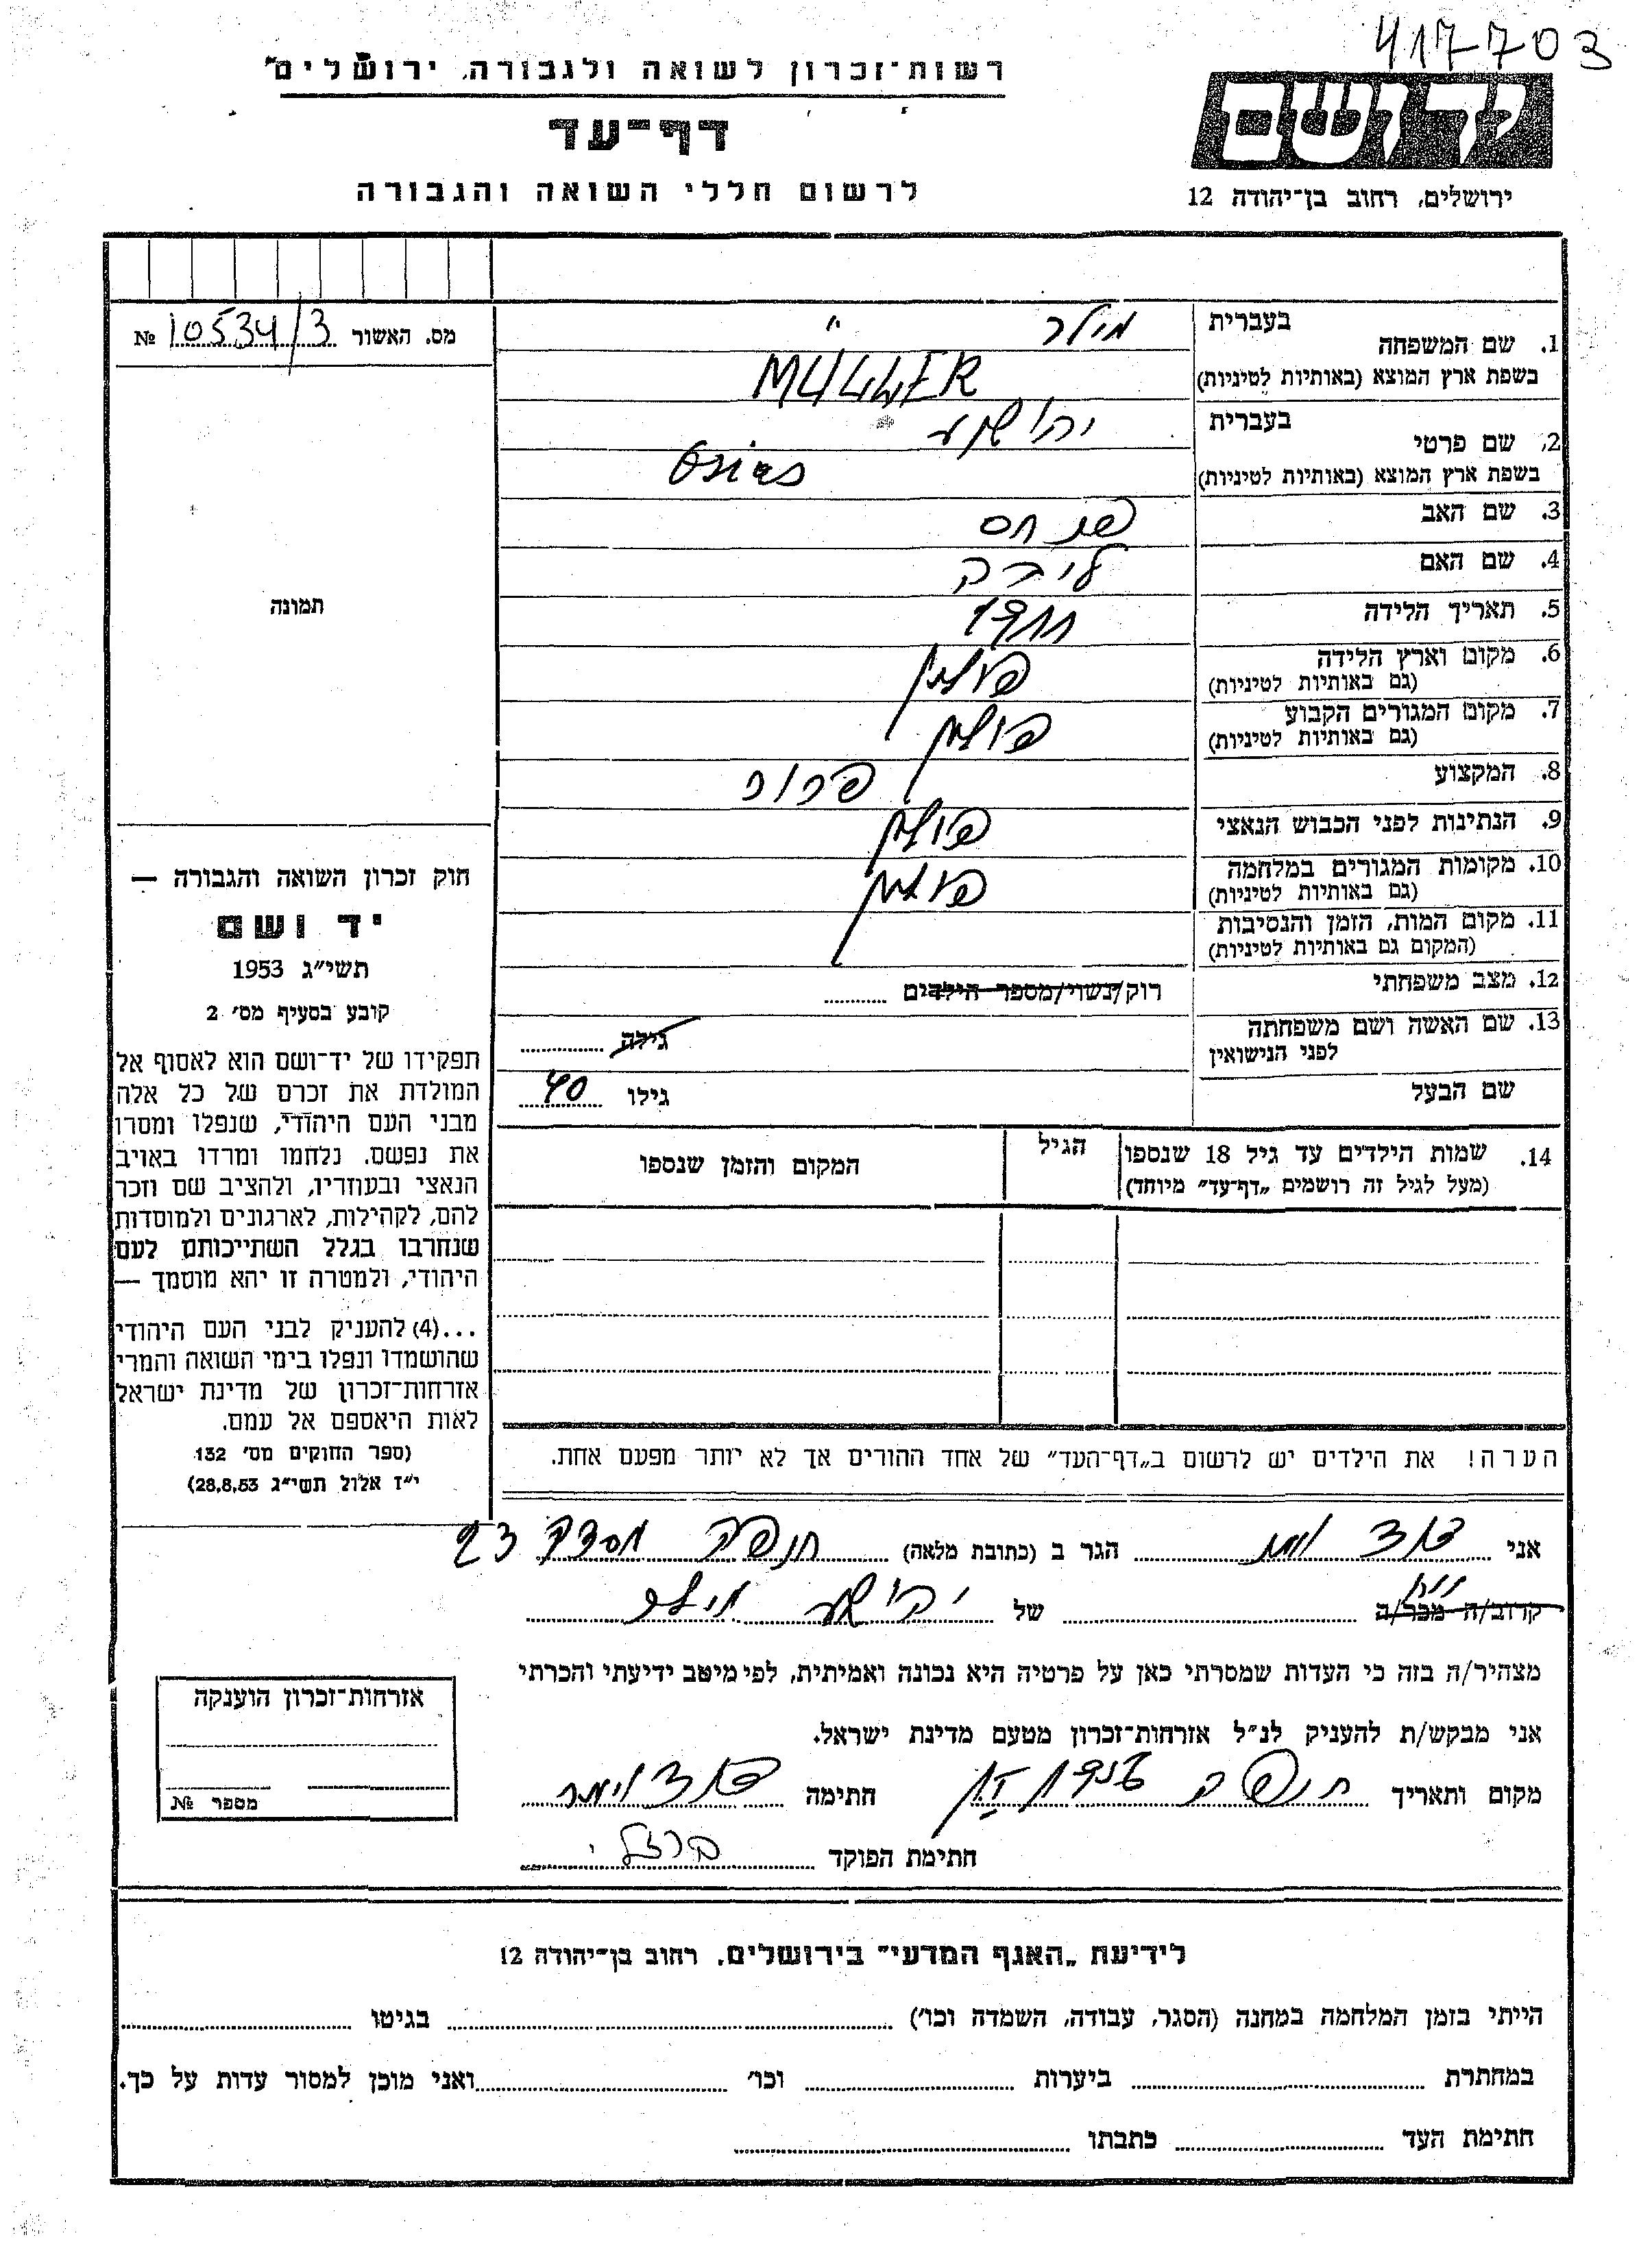 417703
רשות־זכרון לשואה ולגבורה, ירושלים״
דף־עד
לרשום חללי השואה והגבורה
יד ושם
ירושלים, רחוב בן־יהודה 12
מס. האשור 10534/3 №
1. שם המשפחה בעברית מילר
בשפת ארץ המוצא (באותיות לטיניות) MÜLLER
2. שם פרטי בעברית יהושע
בשפת ארץ המוצא (באותיות לטיניות)
3. שם האב פנחס
4. שם האם
5. תאריך הלידה
6. מקום וארץ הלידה פולין
(גם באותיות לטיניות)
7. מקום המגורים הקבוע פולין
(גם באותיות לטיניות)
8. המקצוע
9. הנתינות לפני הכבוש הנאצי פולין
10. מקומות המגורים במלחמה פולין
(גם באותיות לטיניות)
11. מקום המות, הזמן והנסיבות
(המקום גם באותיות לטיניות)
12. מצב משפחתי רוק/נשוי/מספר הילדים
13. שם האשה ושם משפחתה
לפני הנישואין גילה
שם הבעל גילו 40
14. שמות הילדים עד גיל 18 שנספו הגיל המקום והזמן שנספו
(מעל לגיל זה רושמים „דף־עד״ מיוחד)
הערה! את הילדים יש לרשום ב„דף־העד״ של אחד ההורים אך לא יותר מפעם אחת.
תמונה
חוק זכרון השואה והגבורה —
יד ושם
תשי״ג 1953
קובע בסעיף מס׳ 2
תפקידו של יד־ושם הוא לאסוף אל
המולדת את זכרם של כל אלה
מבני העם היהודי, שנפלו ומסרו
את נפשם, נלחמו ומרדו באויב
הנאצי ובעוזריו, ולהציב שם וזכר
להם, לקהילות, לארגונים ולמוסדות
שנחרבו בגלל השתייכותם לעם
היהודי, ולמטרה זו יהא מוסמך —
...(4) להעניק לבני העם היהודי
שהושמדו ונפלו בימי השואה והמרי
אזרחות־זכרון של מדינת ישראל
לאות היאספם אל עמם.
(ספר החוקים מס׳ 132
י״ז אלול תשי״ג 28.8.53)
אני הגר ב (כתובת מלאה) חיפה 23
קרוב/ה מכר/ה של יהושע מילר
מצהיר/ה בזה כי העדות שמסרתי כאן על פרטיה היא נכונה ואמיתית, לפי מיטב ידיעתי והכרתי
אני מבקש/ת להעניק לנ״ל אזרחות־זכרון מטעם מדינת ישראל.
מקום ותאריך חיפה חתימה
חתימת הפוקד ברזלי
אזרחות־זכרון הוענקה
מספר №
לידיעת „האגף המדעי״ בירושלים, רחוב בן־יהודה 12
הייתי בזמן המלחמה במחנה (הסגר, עבודה, השמדה וכו׳) בגיטו
במחתרת ביערות וכו׳ ואני מוכן למסור עדות על כך.
חתימת העד כתבתו